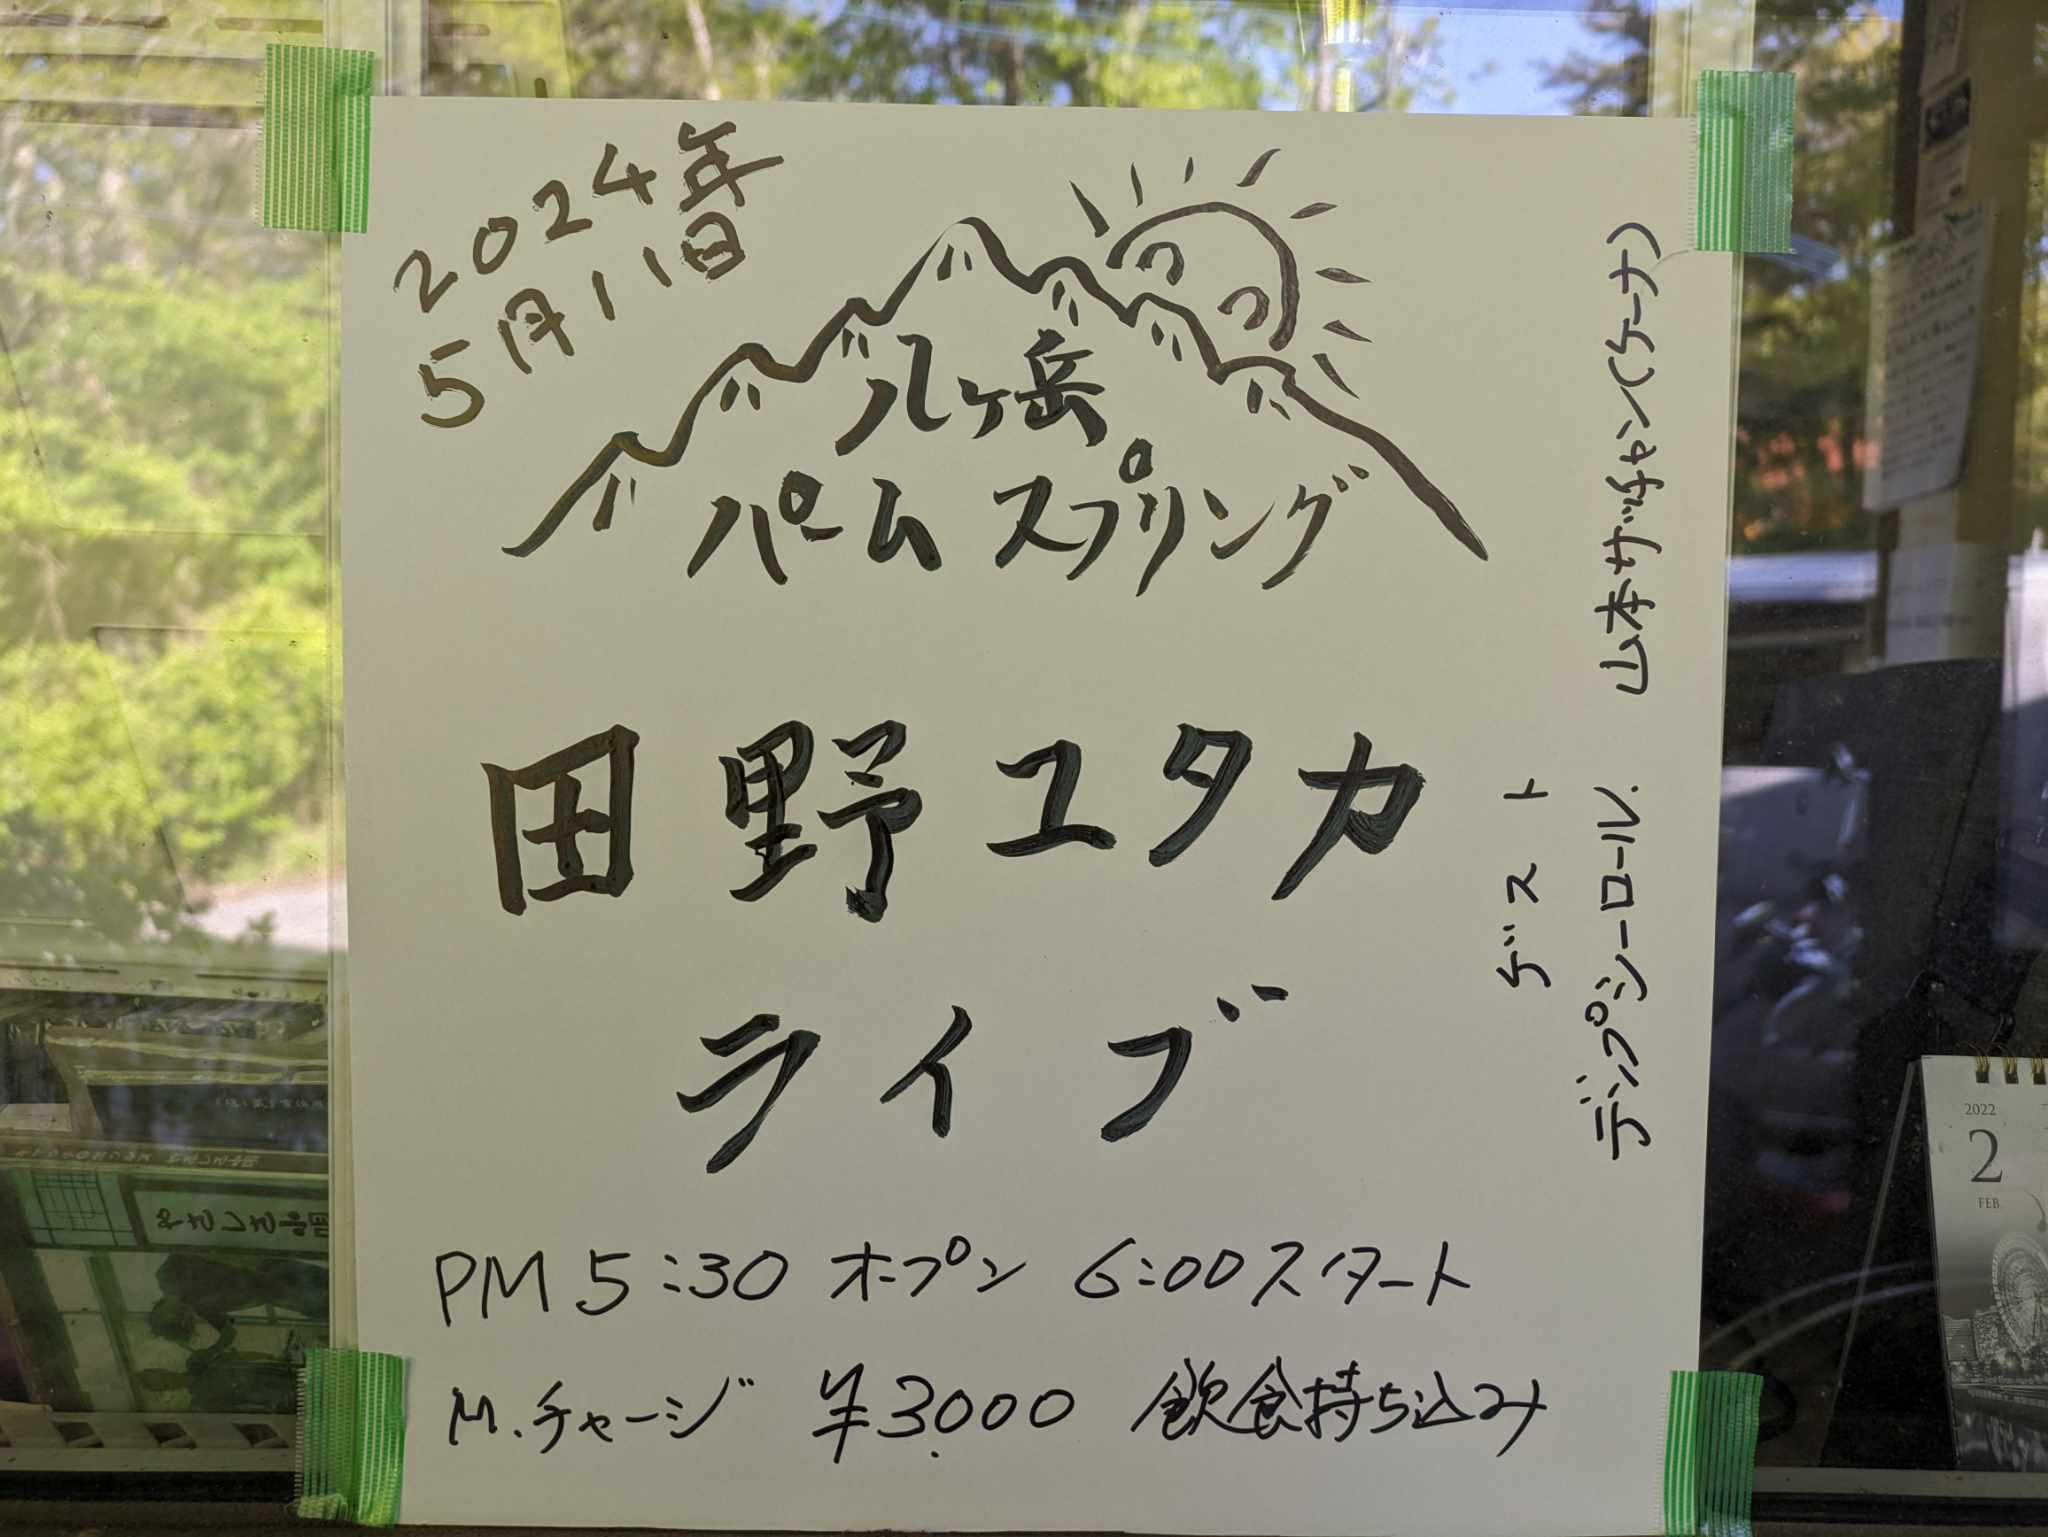 2024年
5月11日
八ヶ岳
パームスプリング
田野ユタカ
ライブ
ゲスト
デンプシーロール. 山本サッチャン(ケーナ)
PM 5:30 オープン 6:00スタート
M.チャージ ¥3.000 飲食持ち込み
2022
2
FEB